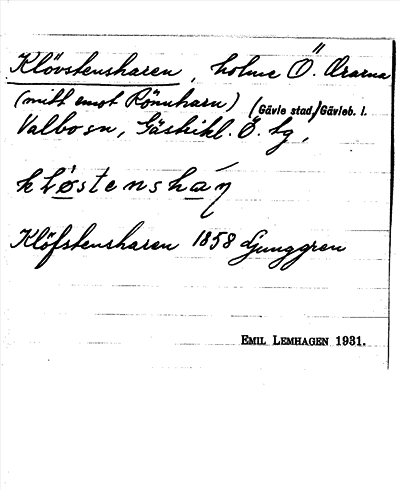 Klövstensharen, holme Ö. Ärarna
(mitt emot Rönnharn) (Gävle stad, Gävleb. l.
Valbo sn, Gästrikl. Ö. tg,
klø̀stenshą́ŋ
Klöfstensharen 1858 Ljunggren
EMIL LEMHAGEN 1931.